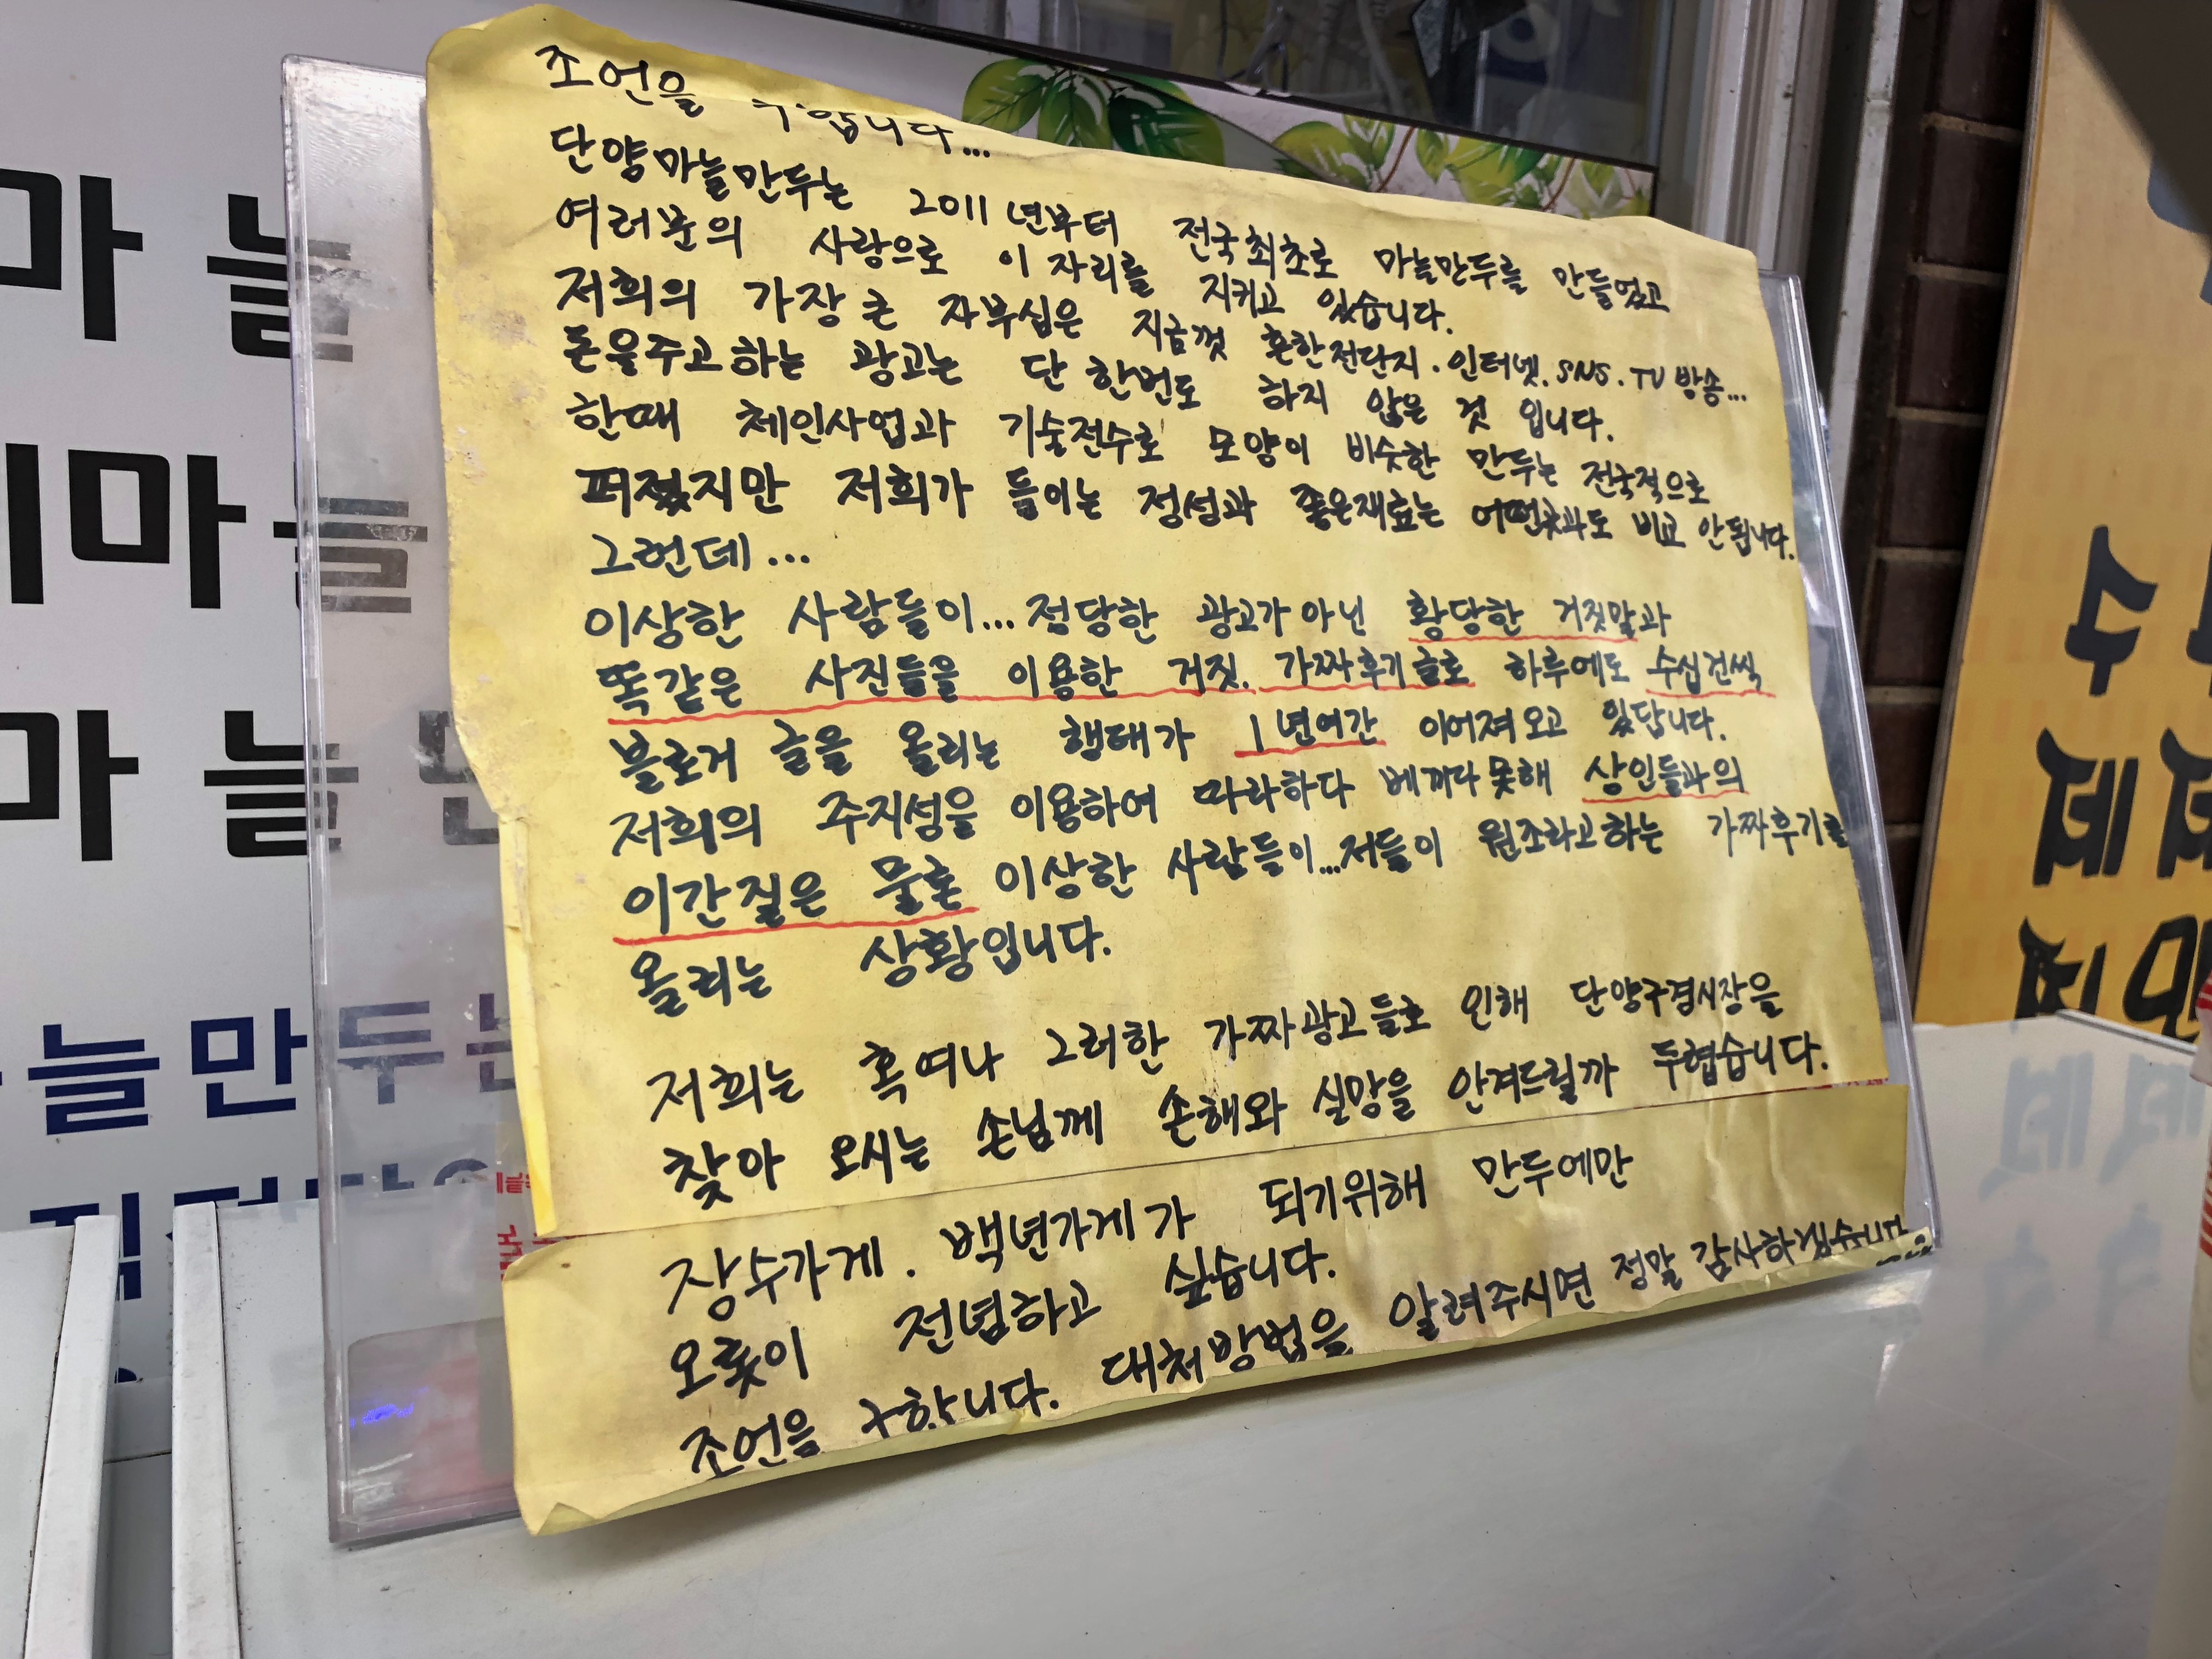 조언을 구합니다...
단양마늘만두는 2011년부터 전국최초로 마늘만두를 만들었고
여러분의 사랑으로 이 자리를 지키고 있습니다.
저희의 가장 큰 자부심은 지금껏 흔한전단지.인터넷.SNS.TV방송...
돈을주고하는 광고는 단 한번도 하지 않은 것 입니다.
한때 체인사업과 기술전수로 모양이 비슷한 만두는 전국적으로
퍼졌지만 저희가 들이는 정성과 좋은재료는 어떤곳과도 비교 안됩니다.
그런데...
이상한 사람들이...정당한 광고가아닌 황당한 거짓말과
똑같은 사진들을 이용한 거짓.가짜후기글로 하루에도 수십건씩
블로거 글을 올리는 행태가 1년여간 이어져오고 있답니다.
저희의 주지성을 이용하여 따라하다 베끼다못해 상인들과의
이간질은 물론 이상한 사람들이...저들이 원조라고하는 가짜후기를
올리는 상황입니다.
저희는 혹여나 그러한 가짜광고들로 인해 단양구경시장을
찾아 오시는 손님께 손해와 실망을 안겨드릴까 두렵습니다.
장수가게.백년가게가 되기위해 만두에만
오롯이 전념하고 싶습니다.
조언을 구합니다. 대처방법을 알려주시면 정말 감사하겠습니다
마늘
마늘
마늘
늘만두는